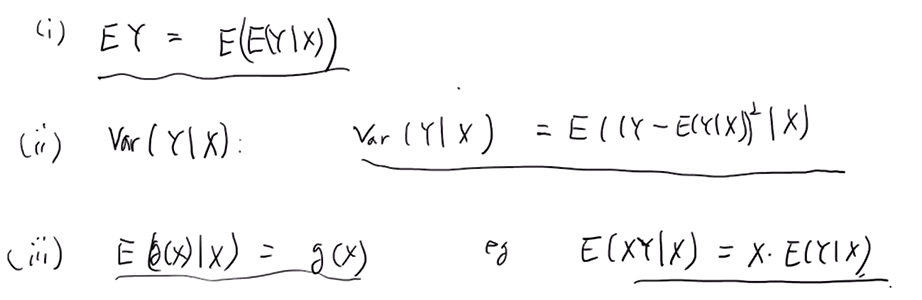 (i) EY = E(E(Y|X))
(ii) Var(Y|X): Var(Y|X) = E((Y-E(Y|X))²|X)
(iii) E(g(X)|X) = g(X) eg E(XY|X) = X· E(Y|X)